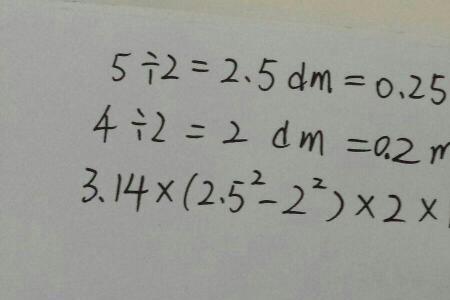 5÷2=2.5dm=0.25
4÷2=2 dm=0.2m
3.14×(2.5²-2²)×2×